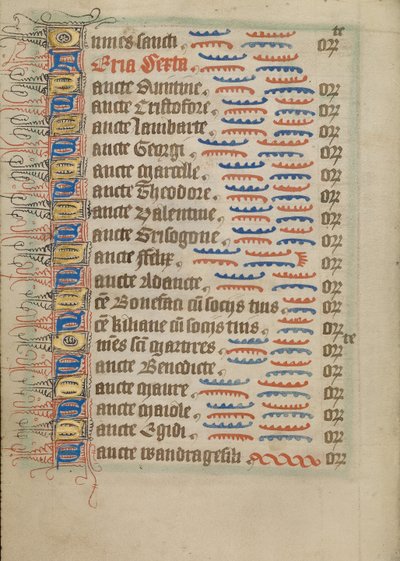 Omnes sancti orͣ te
Feria Sexta
Sancte Quintine or
Sancte Cristofore or
Sancte Lambarte or
Sancte Georgi or
Sancte Marcelle or
Sancte Theodore or
Sancte Valentine or
Sancte Grisogone or
Sancte ffelix or
Sancte Adaucte or
Scē Bonefaci cū socys tuis or
Scē kiliane cū socys tuis or
Omēs sct̄i martires or te
Sancte Benedicte or
Sancte Maure or
Sancte Maiole or
Sancte Egidi or
Sancte wandragesili or